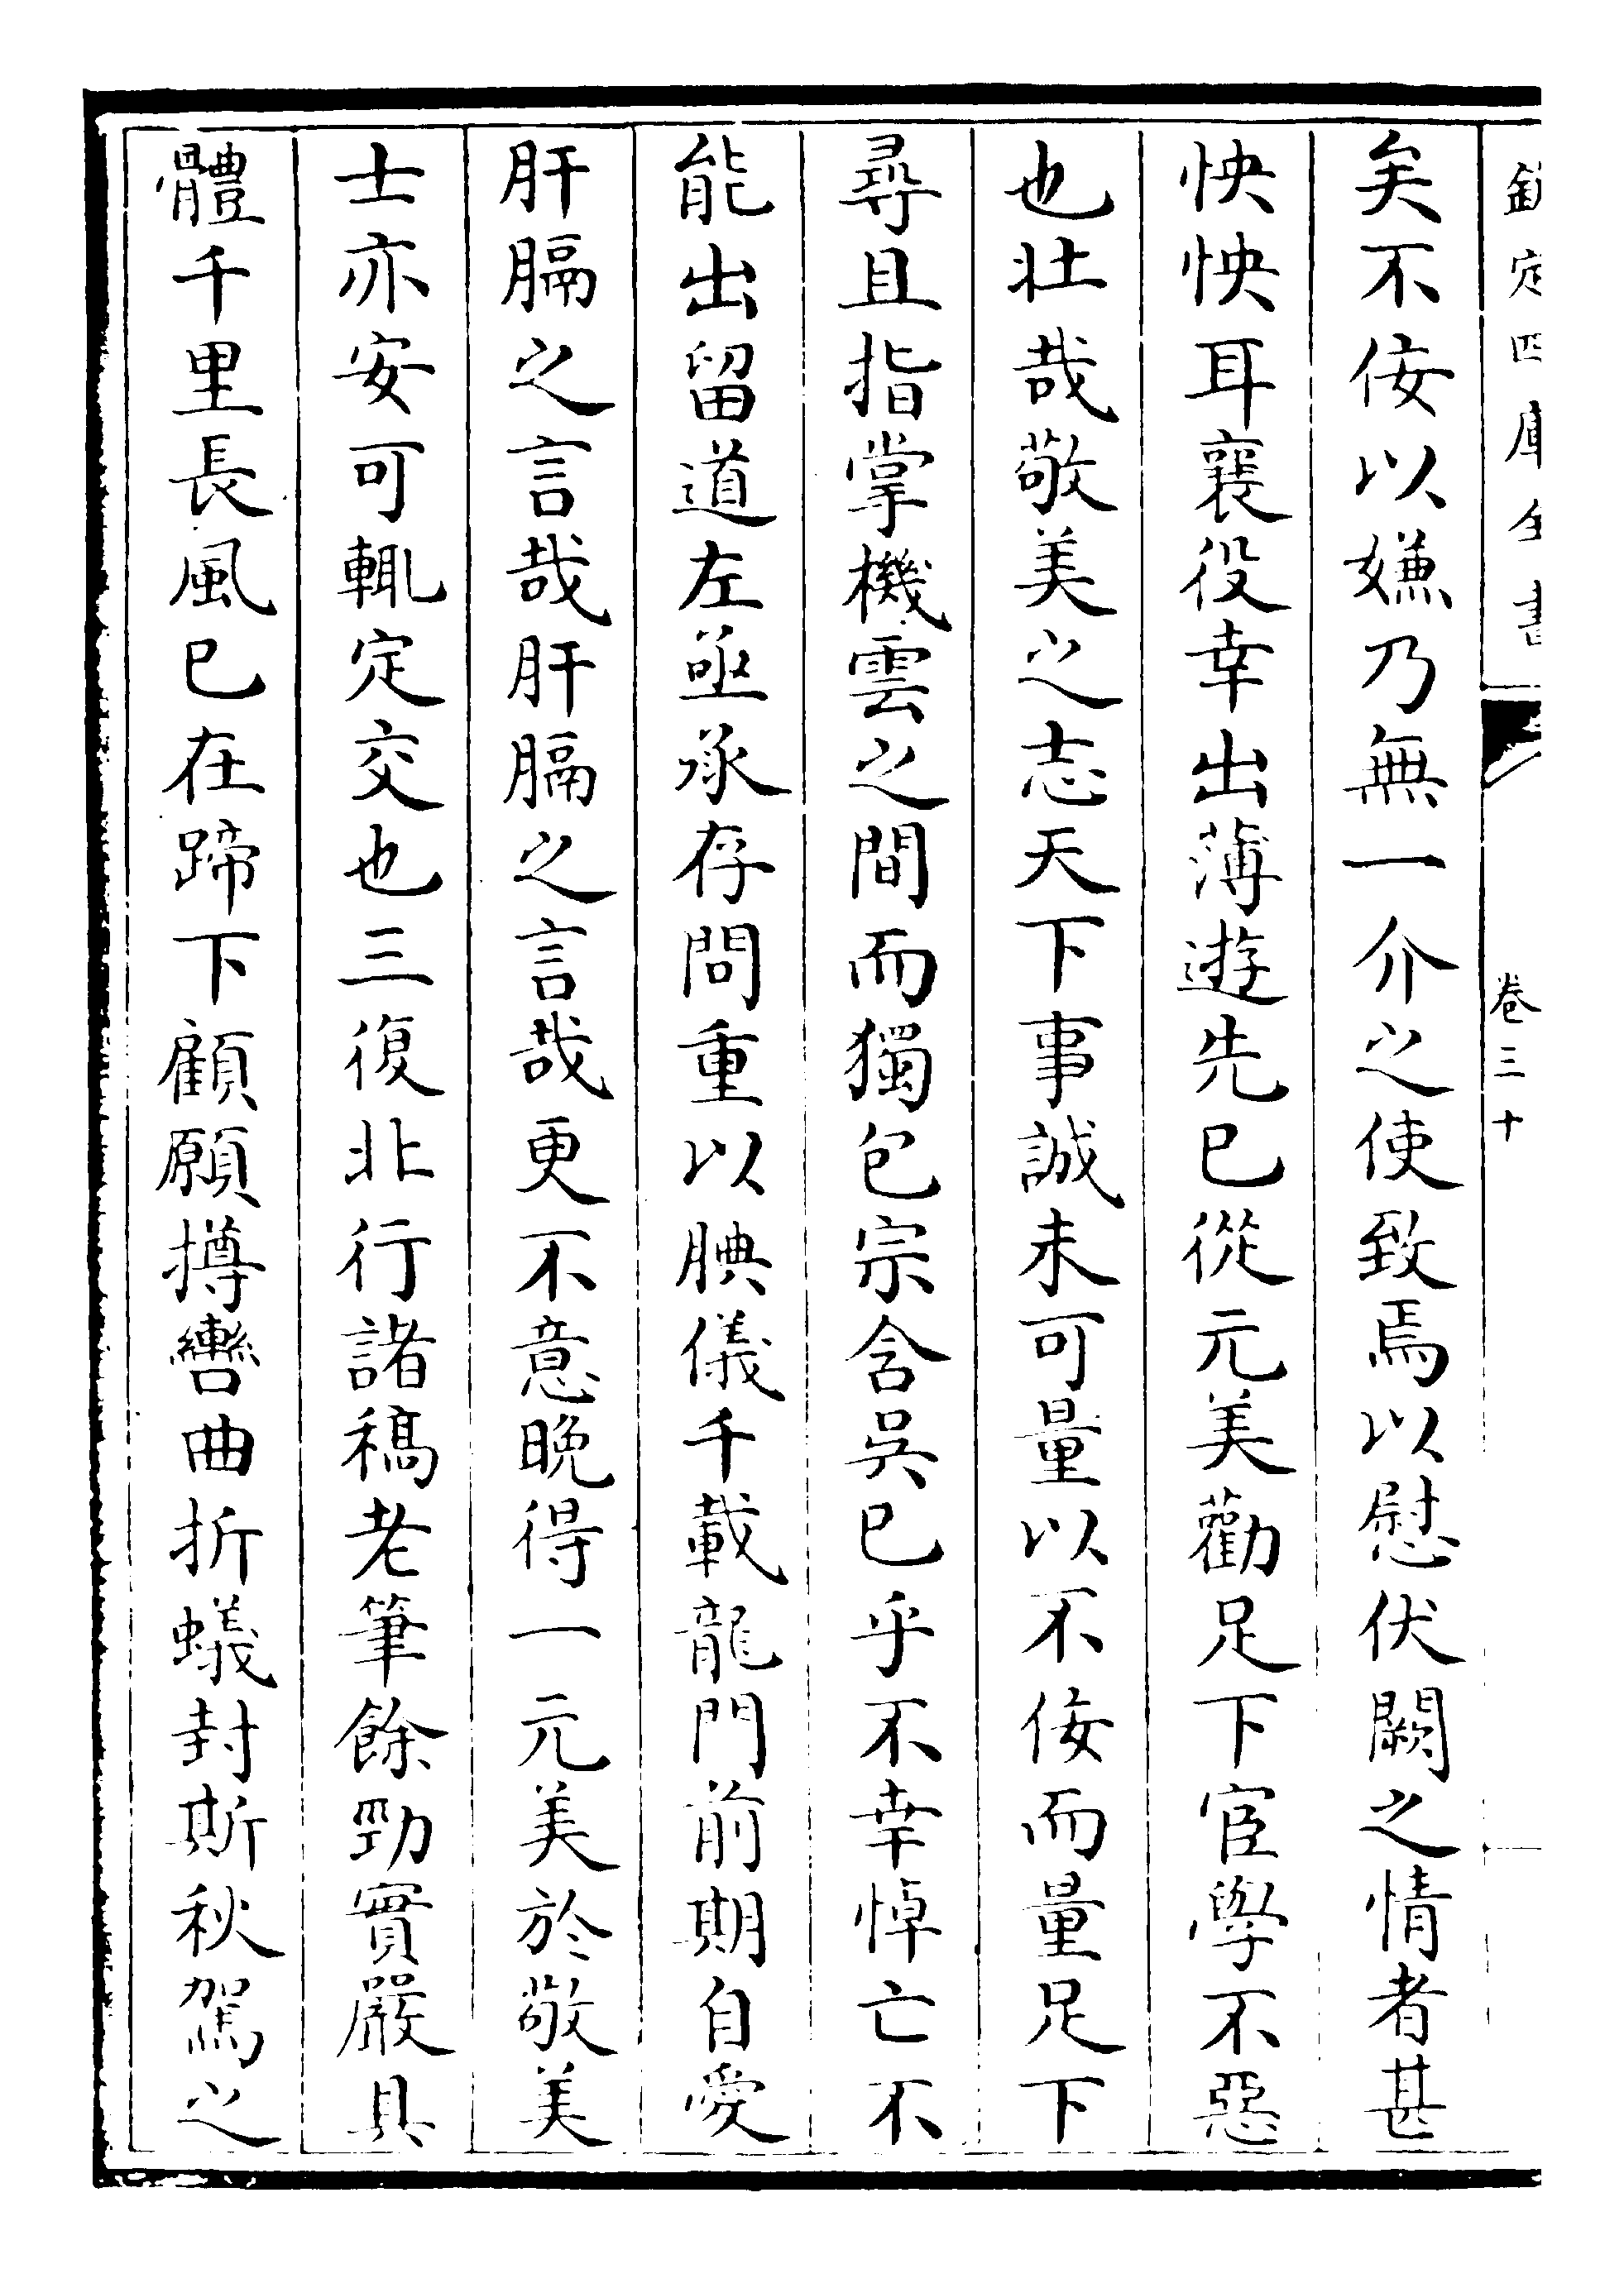 欽定四庫全書
卷三十
矣不佞以嫌乃無一介之使致焉以慰伏闕之情者甚
怏怏耳襄役幸出薄遊先已從元美勸足下宦學不惡
也壯哉敬美之志天下事誠未可量以不佞而量足下
尋且指掌機雲之間而獨包宗含吳已乎不幸悼亡不
能出留道左亟承存問重以腆儀千載龍門前期自愛
肝膈之言哉肝膈之言哉更不意晚得一元美於敬美
士亦安可輒定交也三復北行諸稿老筆餘勁實嚴具
體千里長風已在蹄下顧願撙轡曲折蟻封斯秋駕之